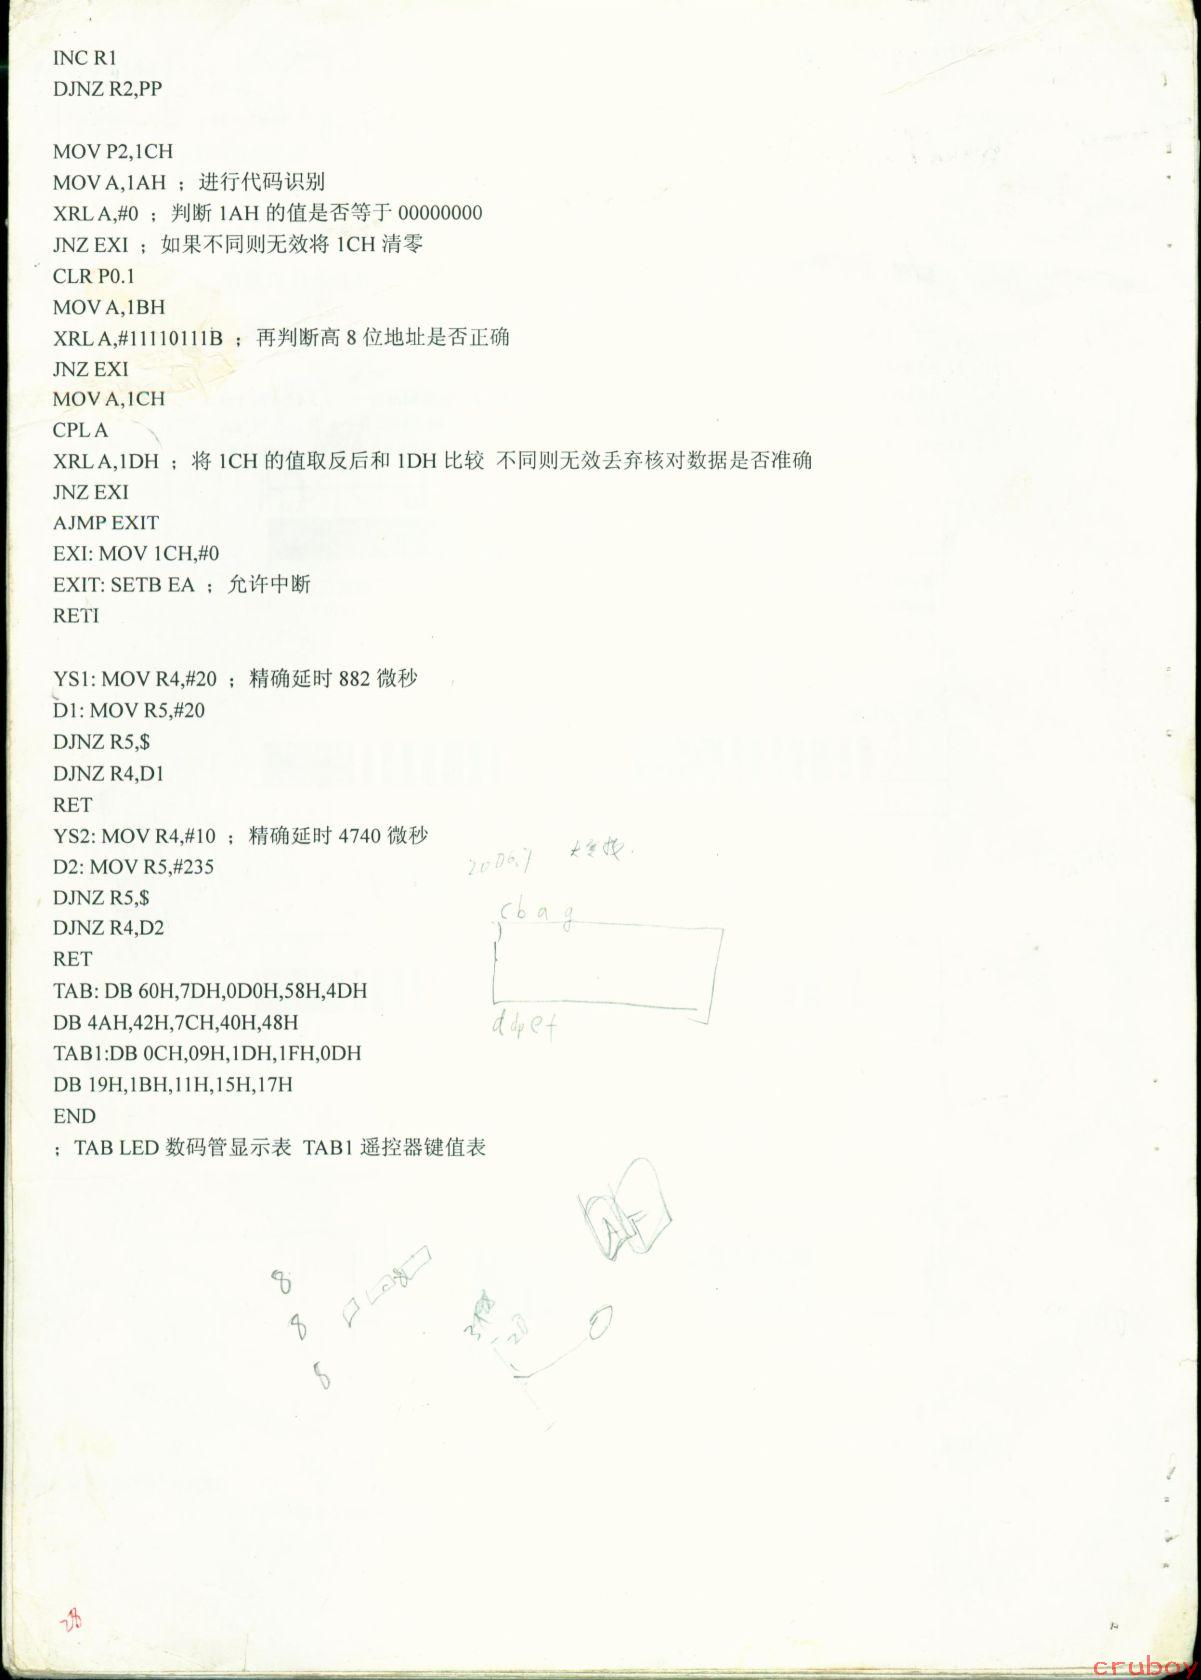 INC R1
DJNZ R2,PP
MOV P2,1CH
MOV A,1AH ；进行代码识别
XRL A,#0 ；判断 1AH 的值是否等于 00000000
JNZ EXI ；如果不同则无效将 1CH 清零
CLR P0.1
MOV A,1BH
XRL A,#11110111B ；再判断高 8 位地址是否正确
JNZ EXI
MOV A,1CH
CPL A
XRL A,1DH ；将 1CH 的值取反后和 1DH 比较 不同则无效丢弃核对数据是否准确
JNZ EXI
AJMP EXIT
EXI: MOV 1CH,#0
EXIT: SETB EA ；允许中断
RETI
YS1: MOV R4,#20 ；精确延时 882 微秒
D1: MOV R5,#20
DJNZ R5,$
DJNZ R4,D1
RET
YS2: MOV R4,#10 ；精确延时 4740 微秒
D2: MOV R5,#235
DJNZ R5,$
DJNZ R4,D2
RET
TAB: DB 60H,7DH,0D0H,58H,4DH
DB 4AH,42H,7CH,40H,48H
TAB1:DB 0CH,09H,1DH,1FH,0DH
DB 19H,1BH,11H,15H,17H
END
；TAB LED 数码管显示表 TAB1 遥控器键值表
c b a g
d dp e f
8
8
8
28
cruboy